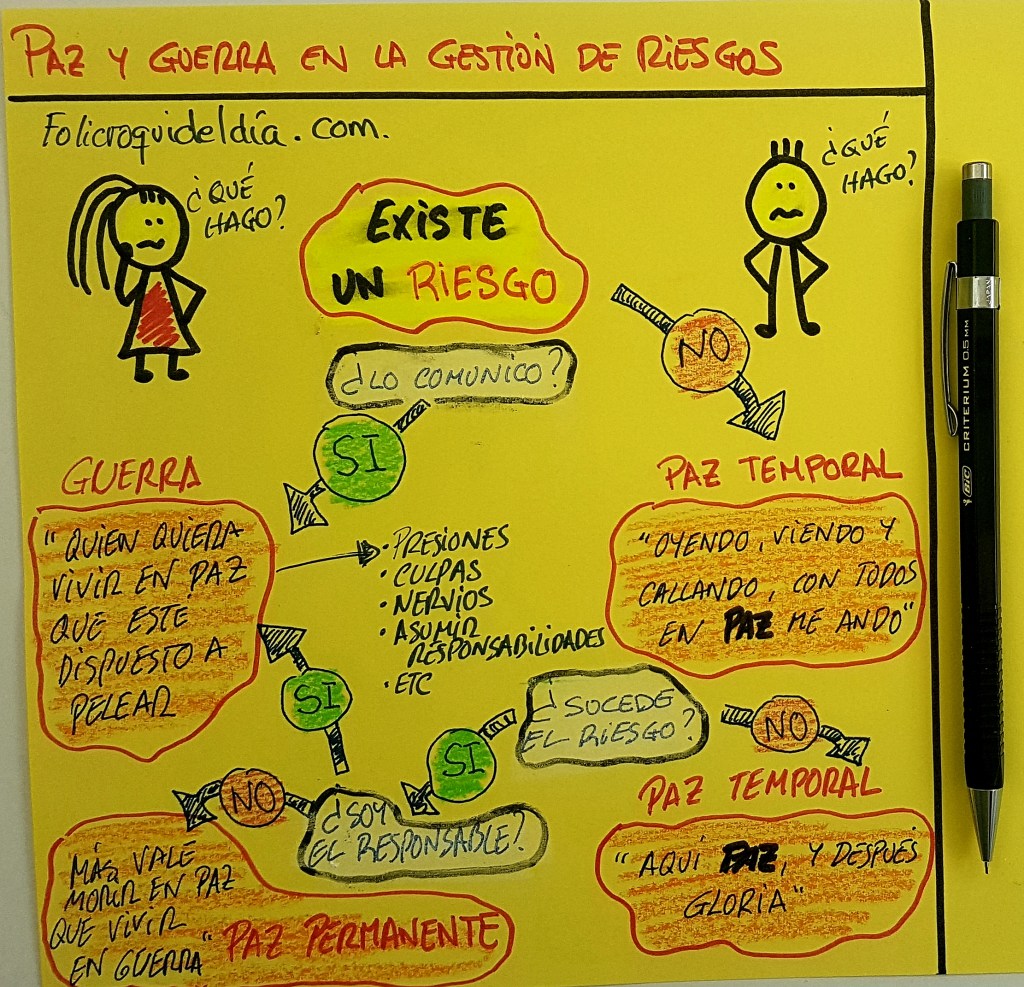 PAZ Y GUERRA EN LA GESTIÓN DE RIESGOS
Folicroquideldía.com.
¿QUÉ
HAGO?
¿QUÉ
HAGO?
EXISTE
UN RIESGO
NO
¿LO COMUNICO?
SI
GUERRA
"QUIEN QUIERA
VIVIR EN PAZ
QUE ESTE
DISPUESTO A
PELEAR
• PRESIONES
• CULPAS
• NERVIOS
• ASUMIR
RESPONSABILIDADES
• ETC
PAZ TEMPORAL
"OYENDO, VIENDO Y
CALLANDO, CON TODOS
EN PAZ ME ANDO"
¿SUCEDE
EL RIESGO?
NO
SI
SI
PAZ TEMPORAL
"AQUÍ PAZ, Y DESPUÉS
GLORIA"
¿SOY
EL RESPONSABLE?
NO
MÁS VALE
MORIR EN PAZ
QUE VIVIR
EN GUERRA"
PAZ PERMANENTE
BIC CRITERIUM 0.5 MM
JAPAN